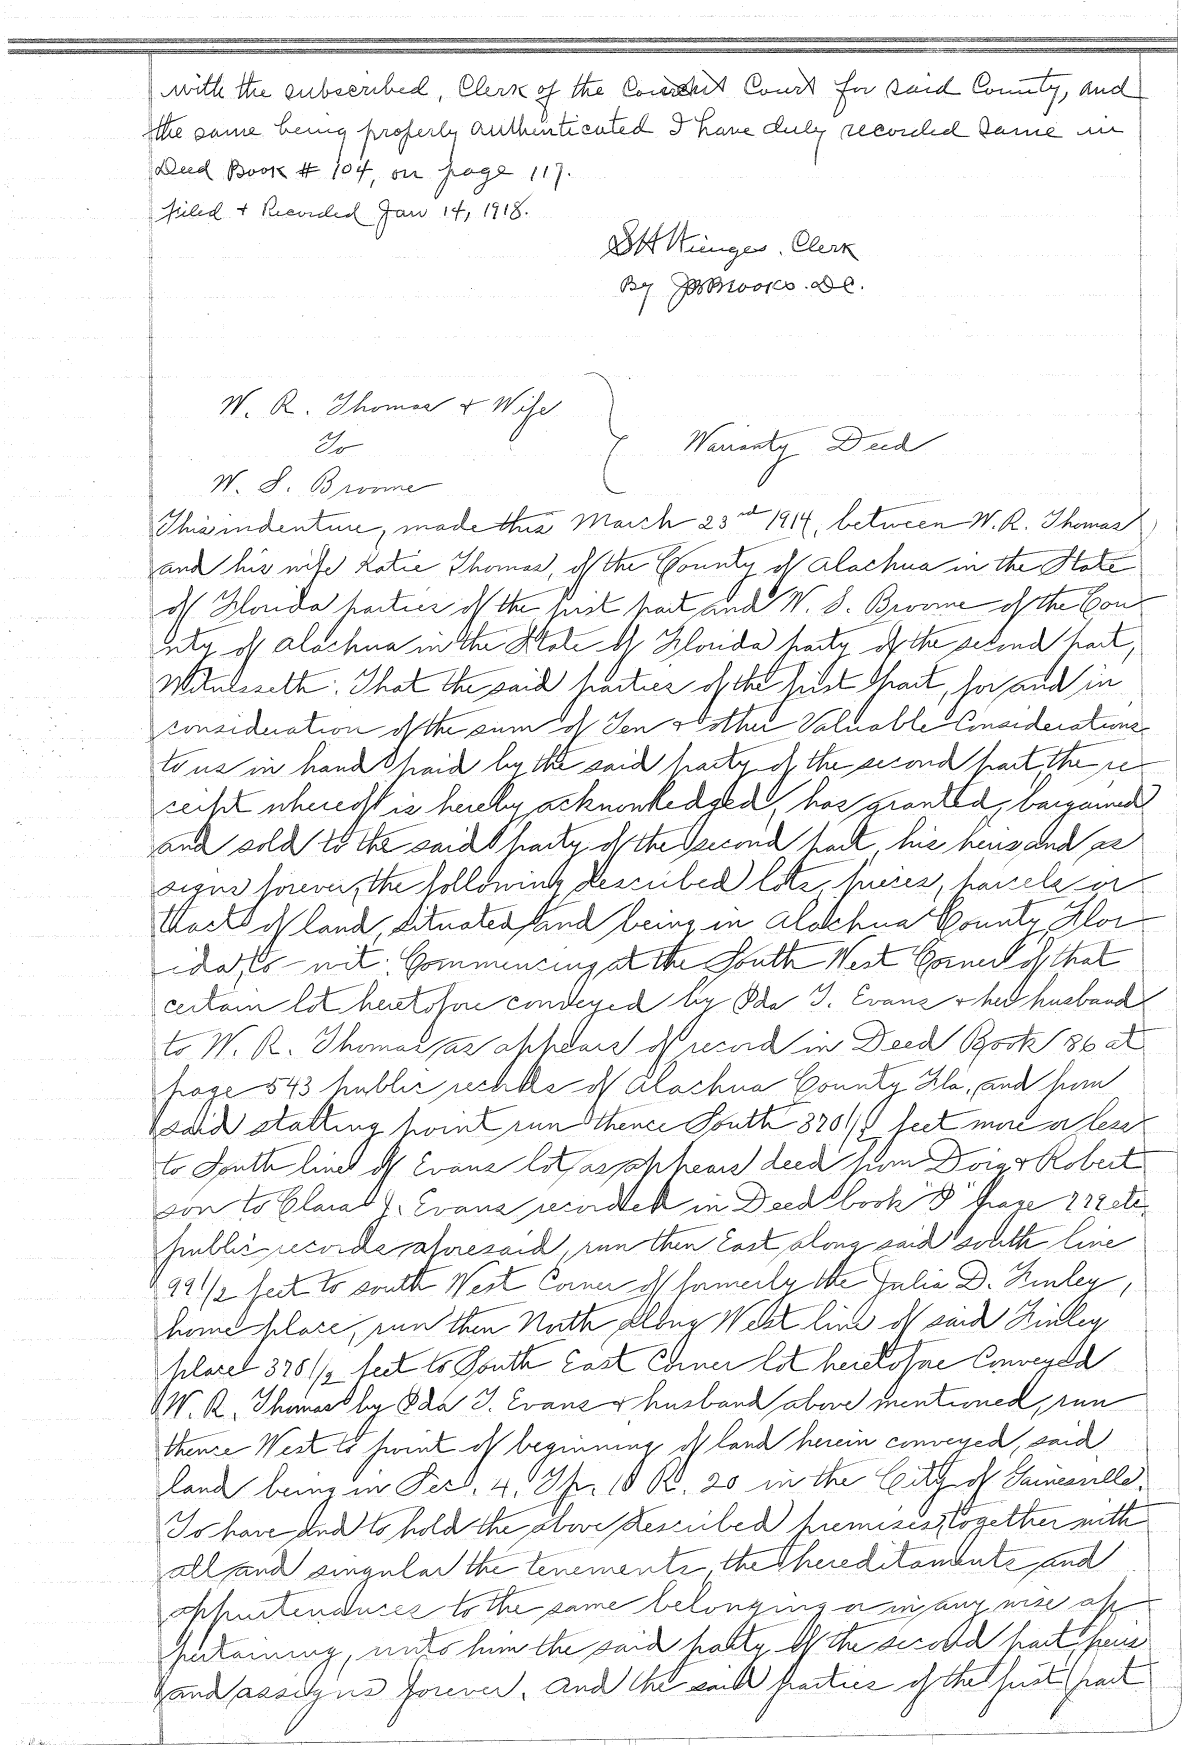 with the subscribed, Clerk of the Circuit Court for said County, and
the same being properly authenticated I have duly recorded same in
Deed Book # 104, on page 117.
Filed + Recorded Jan 14, 1918.
S H Wienges. Clerk
By Brooks. D.C.
W. R. Thomas + Wife
To
Warranty Deed
W. S. Broome
This indenture, made this March 23rd 1914, between W. R. Thomas
and his wife Katie Thomas, of the County of Alachua in the State
of Florida parties of the first part and W. S. Broome of the Cou
nty of Alachua in the State of Florida party of the second part,
Witnesseth: That the said parties of the first part, for and in
consideration of the sum of Ten + other Valuable Considerations
to us in hand paid by the said party of the second part, the re
ceipt whereof is hereby acknowledged, has granted, bargained
and sold to the said party of the second part, his heirs and as
signs forever, the following described lots, pieces, parcels or
tract of land, situated and being in Alachua County Flor
ida, to-wit: Commencing at the South West Corner of that
certain lot heretofore conveyed by Ida T. Evans + her husband
to W. R. Thomas as appears of record in Deed Book 86 at
page 543 public records of Alachua County Fla, and from
said starting point run thence South 370 1/2 feet more or less
to South line of Evans lot as appears deed from Doig + Robert
son to Clara J. Evans recorded in Deed book page etc,
public records aforesaid, run then East along said south line
99 1/2 feet to south West Corner of formerly the Julia D. Finley,
home place, run then North along West line of said Finley
place 370 1/2 feet to South East Corner lot heretofore Conveyed
W. R. Thomas by Ida T. Evans + husband above mentioned, run
thence West to point of beginning of land herein conveyed, said
land being in Sec. 4, Tp. 10 R. 20 in the City of Gainesville.
To have and to hold the above described premises, together with
all and singular the tenements, the hereditaments and
appurtenances to the same belonging or in any wise ap
pertaining, unto him the said party of the second part, heirs
and assigns forever. And the said parties of the first part